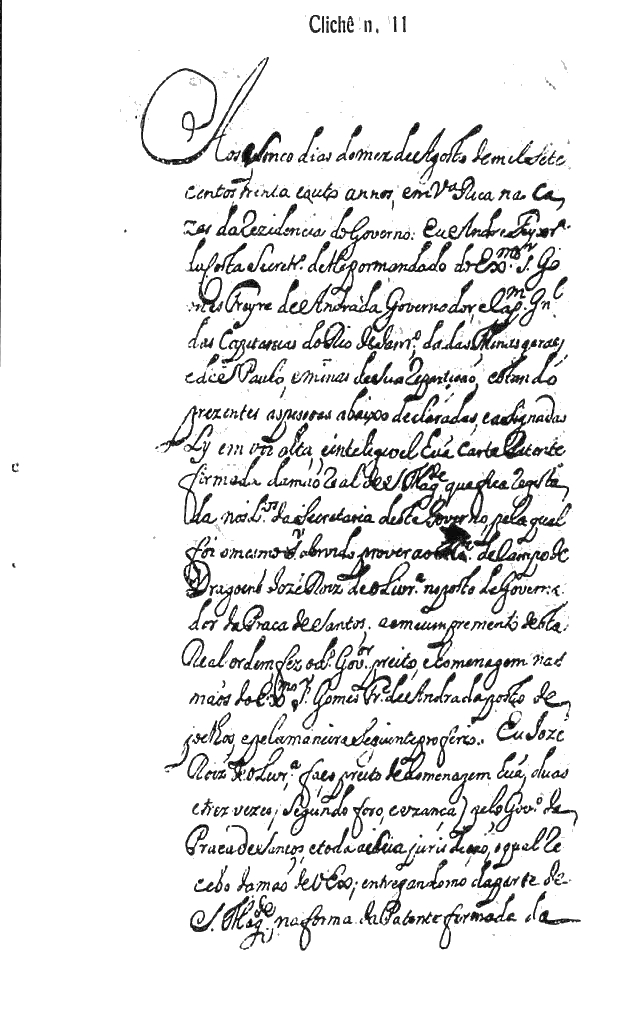 Clichê n. 11
Aos sinco dias do mez de Agosto de mil sete
centos trinta e outo annos, em V.ª Rica nas Ca,
zas da Rezidencia do Governo: Eu Andre Teyxr.ª
da Costa Secretr.º de Ex.mo Sr. Go
mes Freyre de Andrada Governador, e Cap.m Gn.l
das Capitanias do Rio de Jan.ro da das Minas geraes
e de S. Paulo, e minas de sua repartição, estando
prezentes as pesoas abaixo declaradas, e asignadas
Ly em voz alta, e inteligivel huã Carta Patente
firmada da mão Real de S. Mag.de que fica regista,
da nos L.os da Secretaria deste Governo, pela qual
foi o mesmo Sr. servido prover ao de Campo de
Dragoens Jozé Roiz de Olivr.ª no posto de Governa
dor da Praca de Santos, e em cumpremento desta
Real ordem fez o d.º Gov.or preito, e homenagem nas
mãos do Ex.mo Sr. Gomes Fr.e de Andrada posto de
joelhos, e pela maneira seguinte proferio. Eu Jozé
Roiz de Olivr.ª faço preito de homenagem huã, duas
e trez vezes, segundo foro, e uzança) pelo Gov.º da
Praca de Santos, e toda a sua jurisdição, o qual re
cebo da mão de V Ex.; entregandomo da parte de
S. Mag.de, na forma da Patente firmada da